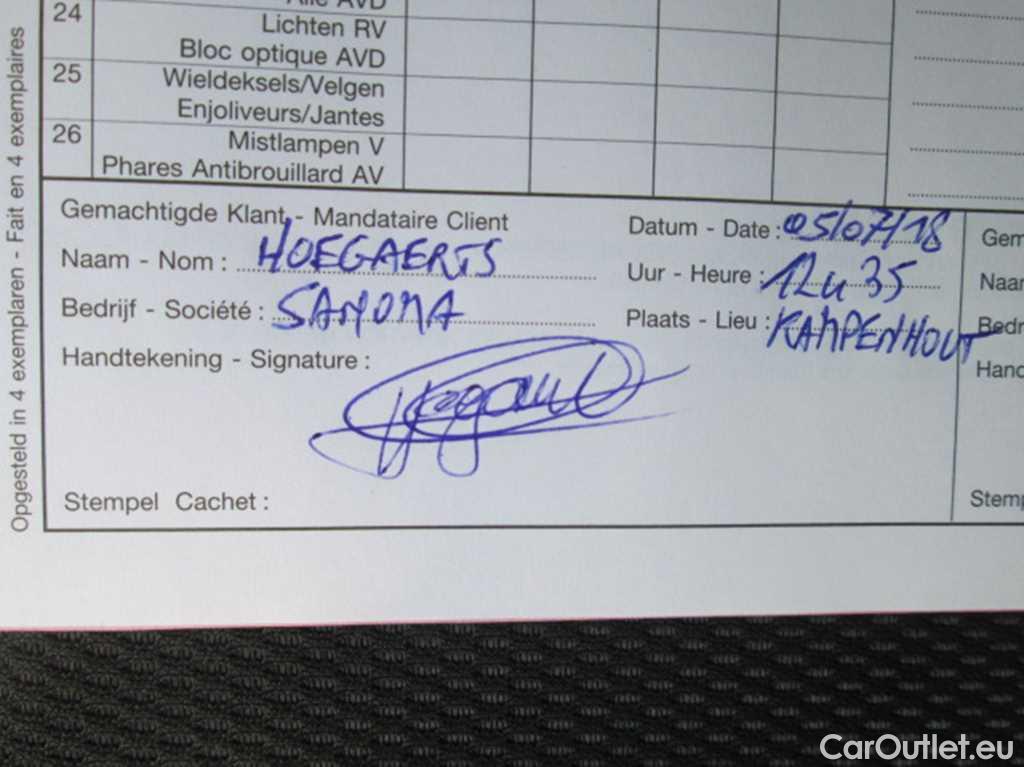 Opgesteld in 4 exemplaren - Fait en 4 exemplaires
Alle AVD
24
Lichten RV
Bloc optique AVD
25
Wieldeksels/Velgen
Enjoliveurs/Jantes
26
Mistlampen V
Phares Antibrouillard AV
Gemachtigde Klant - Mandataire Client
Naam - Nom : HOEGAERTS
Bedrijf - Société : SANOMA
Handtekening - Signature :
Stempel Cachet :
Datum - Date : 05/07/18
Uur - Heure : 12u35
Plaats - Lieu : KAMPENHOUT
Gem
Naar
Bedr
Hand
Stemp
CarOutlet.eu